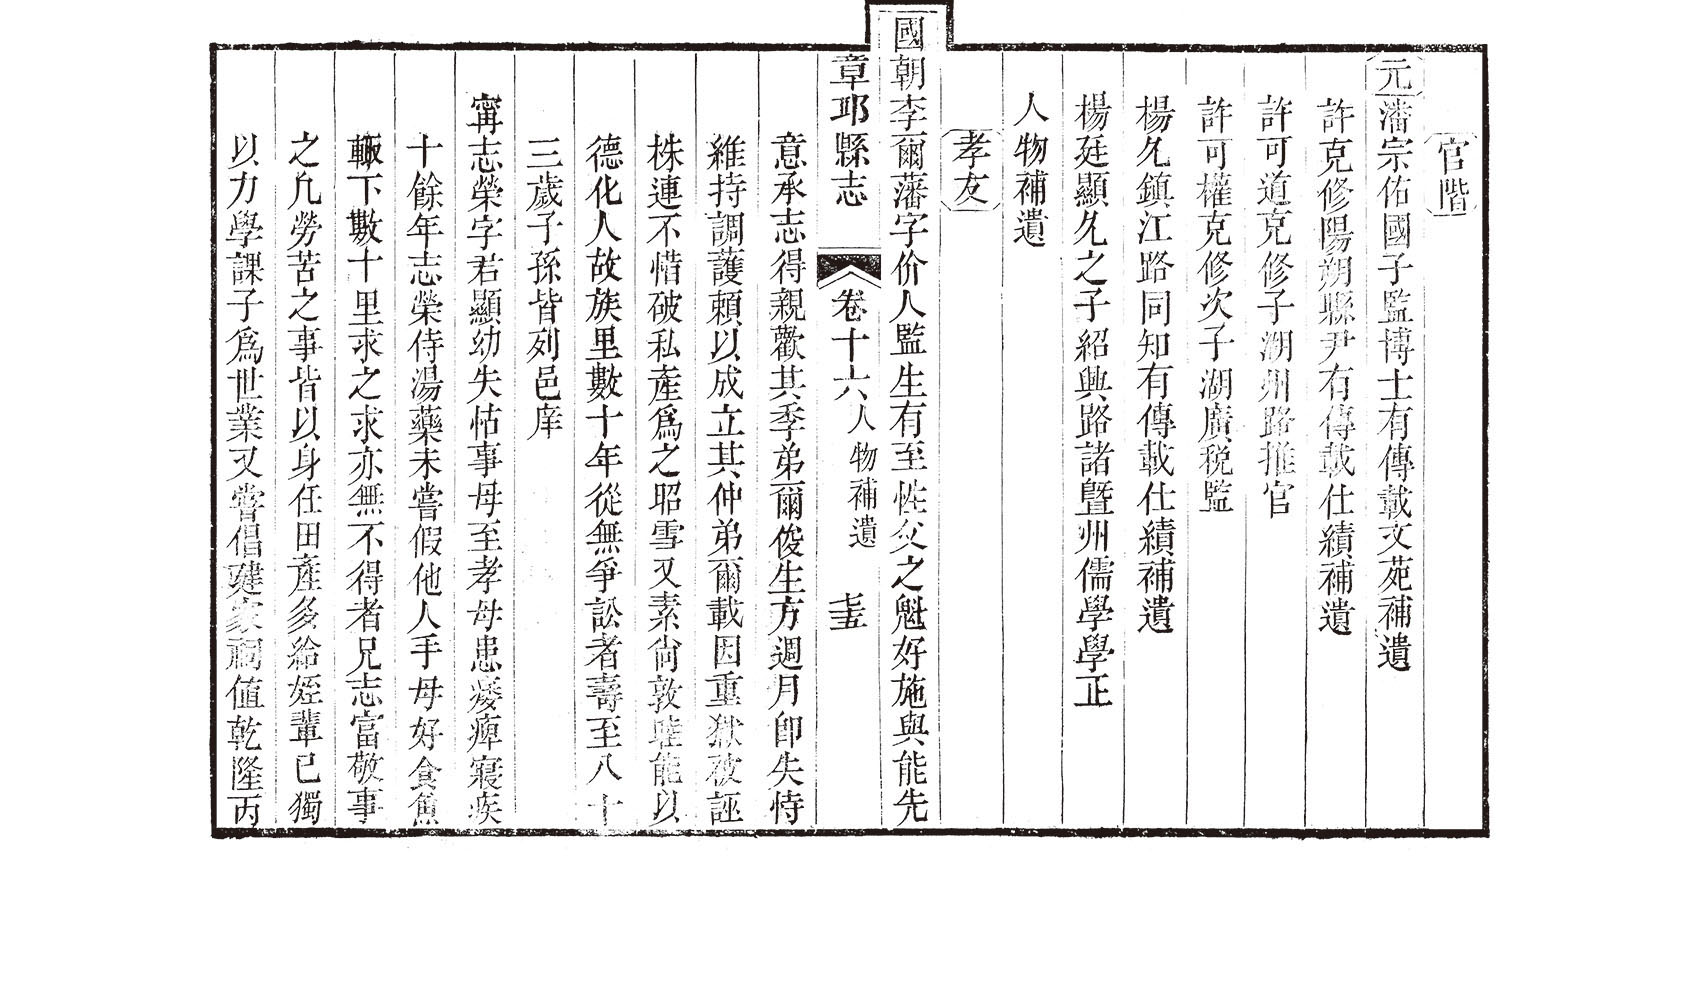 官階
元潘宗佑國子監博士有傳載文苑補遺
許克修陽朔縣尹有傳載仕績補遺
許可道克修子湖州路推官
許可權克修次子湖廣税監
楊久鎮江路同知有傳載仕績補遺
楊廷顯久之子紹興路諸暨州儒學學正
人物補遺
孝友
國朝李爾藩字价人監生有至性父之魁好施與能先
章邱縣志 卷十六 人物補遺 七十五
意承志得親歡其季弟爾俊生方週月卽失恃
維持調護頼以成立其仲弟爾載因重獄被誣
株連不惜破私產爲之昭雪又素尙敦睦能以
德化人故族里數十年從無爭訟者壽至八十
三歲子孫皆列邑庠
甯志榮字君顯幼失怙事母至孝母患痿痺寢疾
十餘年志榮侍湯藥未嘗假他人手母好食魚
輙下數十里求之求亦無不得者兄志富敬事
之凡勞苦之事皆以身任田產多給姪輩已獨
以力學課子爲世業又嘗倡建家祠值乾隆丙